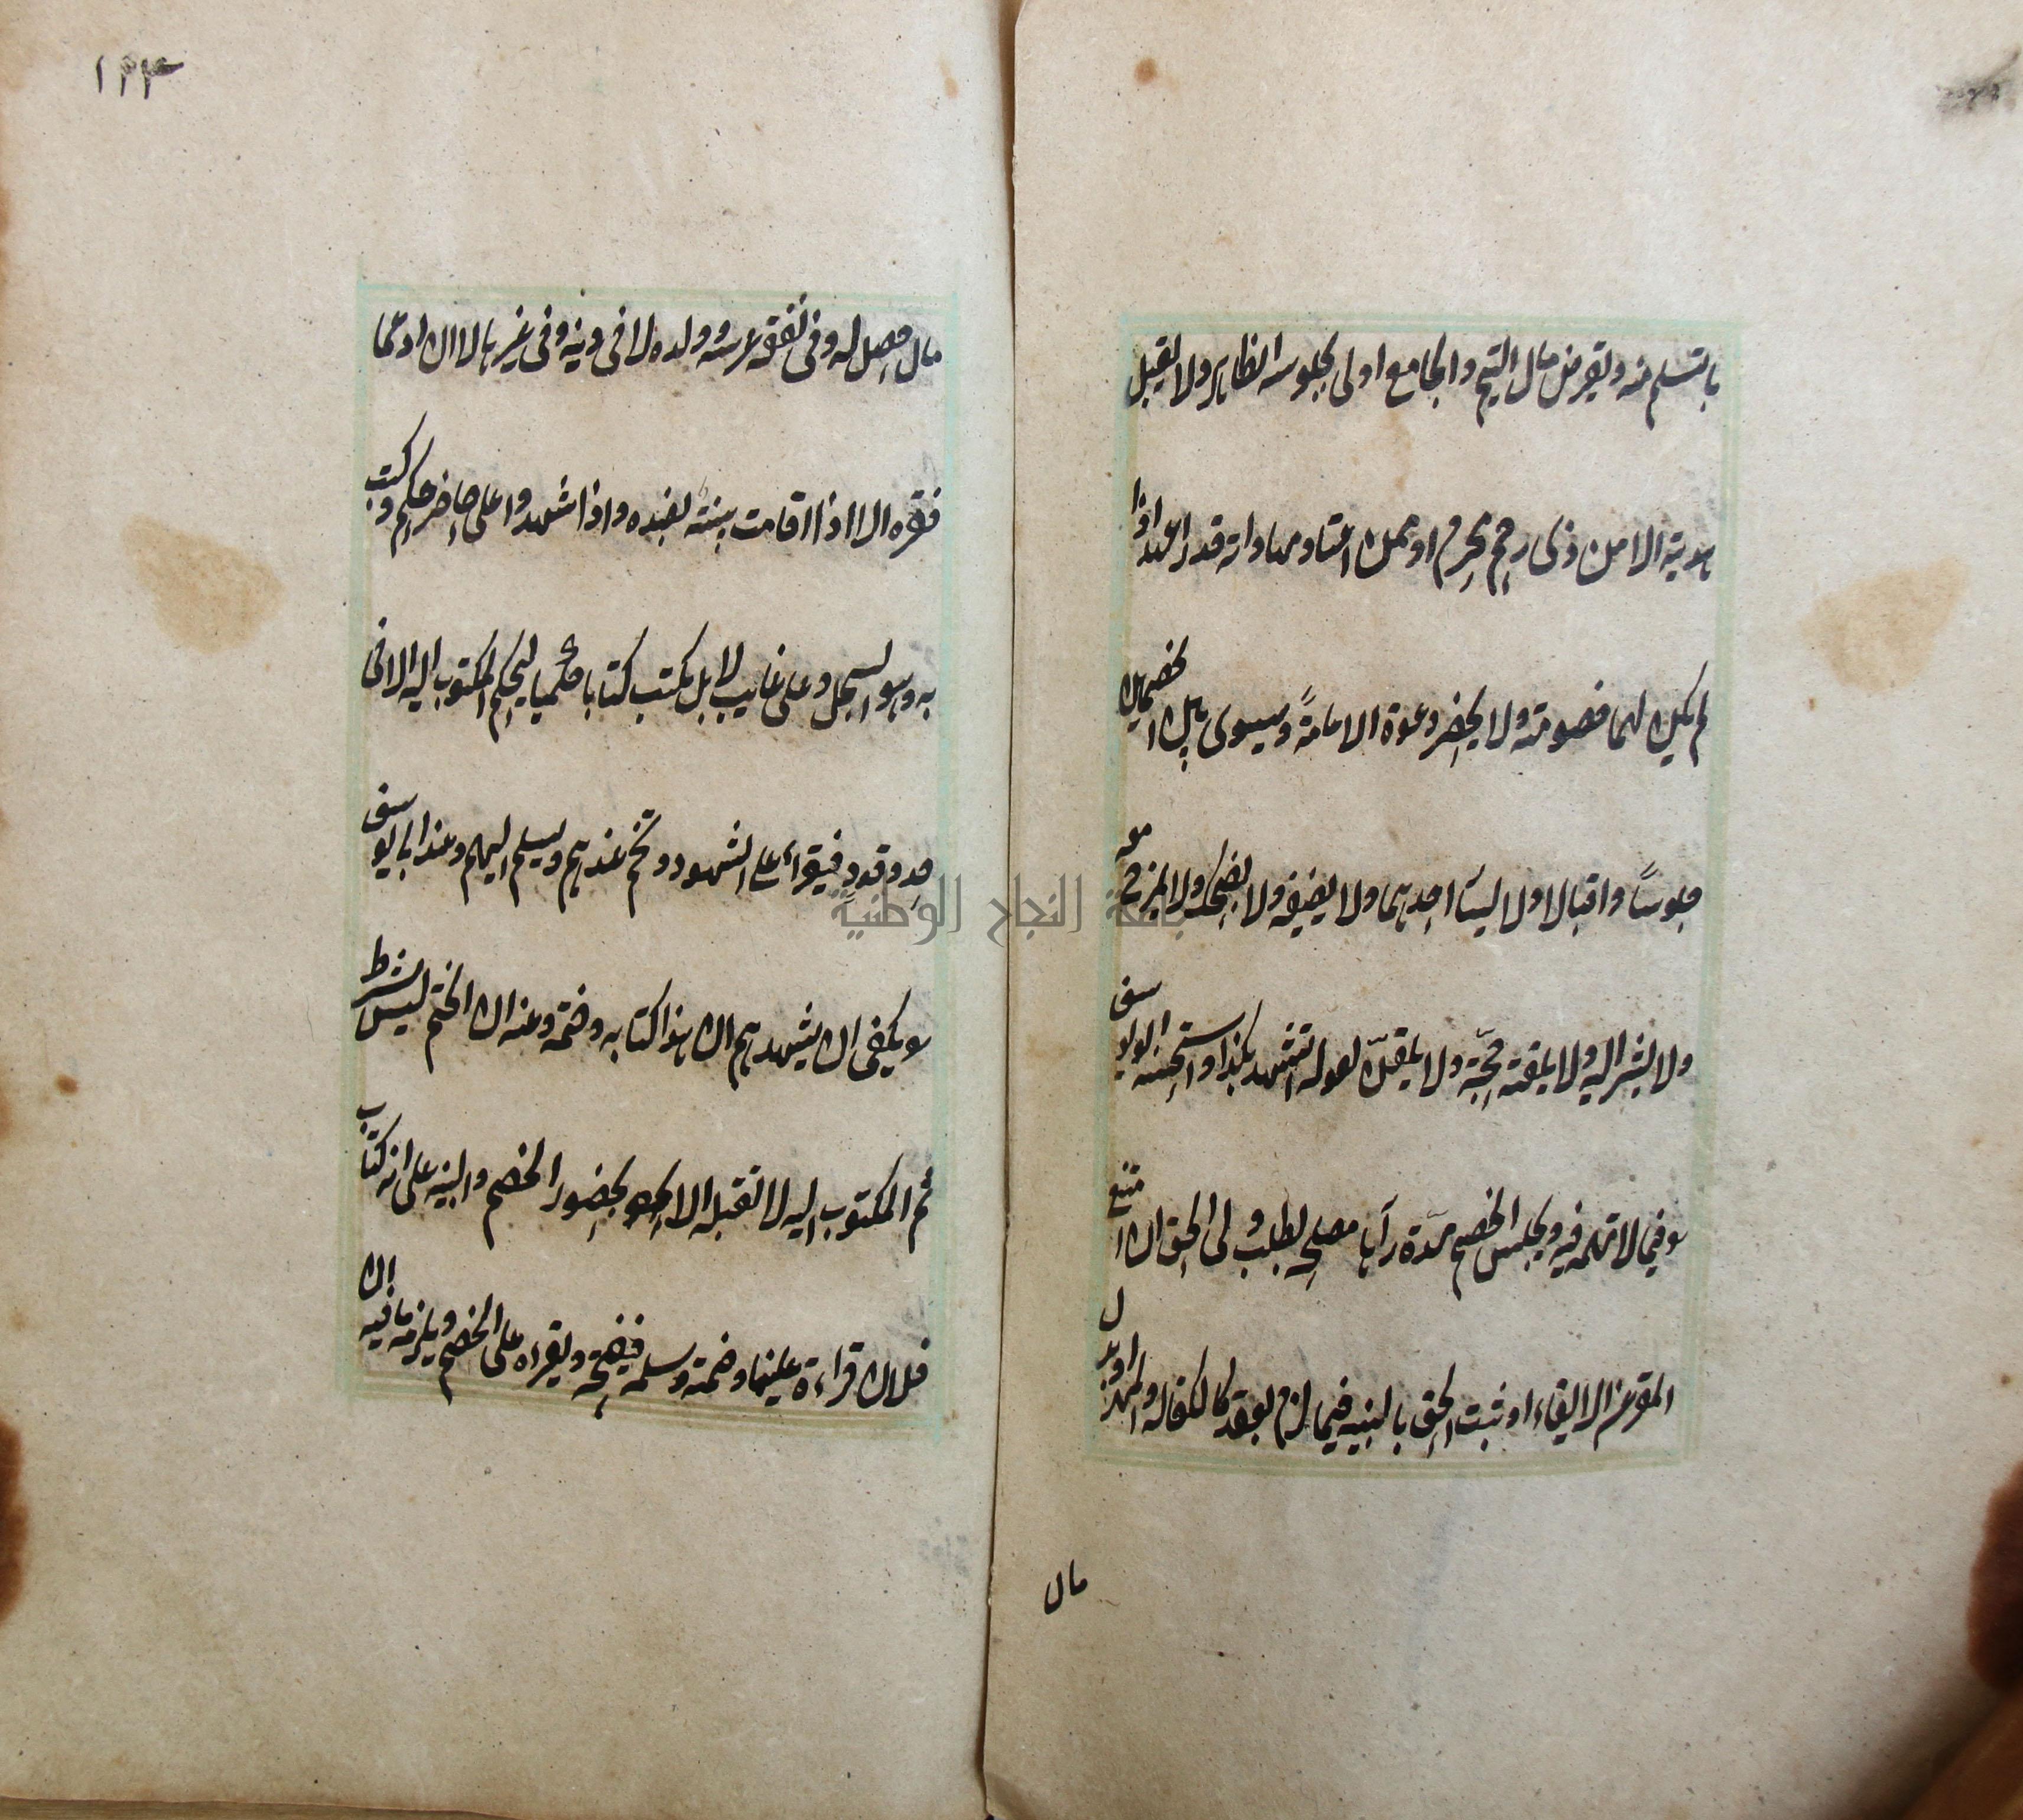 بالتسلم منه ويقرض مال اليتيم والجامع اولى لجلوسه الظاهر ولا يقبل
هدية الا من ذى رحم محرم او ممن اعتاد مهاداته قدرا عهد اذا
لم يكن لهما خصومة ولا يحضر دعوة الا عامةً ويسوى بين الخصمين
جلوسًا واقبالا ولا يسار احدهما ولا يضيفه ولا يضحك ولا يمزح معه
ولا يشير اليه ولا يلقنه حجة ولا يلقن بقوله اتشهد بكذا واستحسنه ابو يوسف
وفيما لا تهمة فيه ويحبس الخصم مدة رآها مصلحة لطلب ولى الحق ان امتنع
المقر عن الايفاء او ثبت الحق بالبينة فيما لزم بعقد كالكفالة والمهر او بدل
مال
١٢٣
مال حصل له وفى نفقة عرسه وولده لا فى دينه وفى غيرها لا ان ادعى
فقره الا اذا اقامت بينته بضده واذا شهدوا على حاضر حكم وكتب
به وهو السجل وعلى غايب لا بل يكتب كتابا حكميا ليحكم المكتوب اليه الا فى
حد وقود فيقراء على الشهود وختم عندهم ويسلم اليهم وعند ابا يوسف
يكفى ان يشهدهم ان هذا كتابه وختمه وعنه ان الختم ليس بشرط
ثم المكتوب اليه لا تقبله الا بحضور الخصم والبينة على انه كتاب
فلان قراءة علينا وختمه وسلمه فيفتحه ويقراه على الخصم ويلزمه ما فيه ان
جامعة النجاح الوطنية